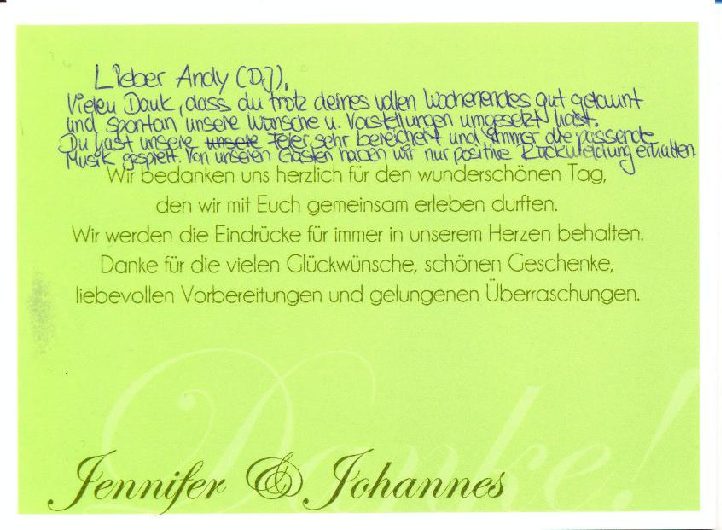 Lieber Andy (DJ),
Vielen Dank, dass du trotz deines vollen Wochenendes gut gelaunt
und spontan unsere Wünsche u. Vorstellungen umgesetzt hast.
Du hast unsere unsere Feier sehr bereichert und immer die passende
Musik gespielt. Von unseren Gästen haben wir nur positive Rückmeldung erhalten
Wir bedanken uns herzlich für den wunderschönen Tag,
den wir mit Euch gemeinsam erleben durften.
Wir werden die Eindrücke für immer in unserem Herzen behalten.
Danke für die vielen Glückwünsche, schönen Geschenke,
liebevollen Vorbereitungen und gelungenen Überraschungen.
Danke!
Jennifer & Johannes